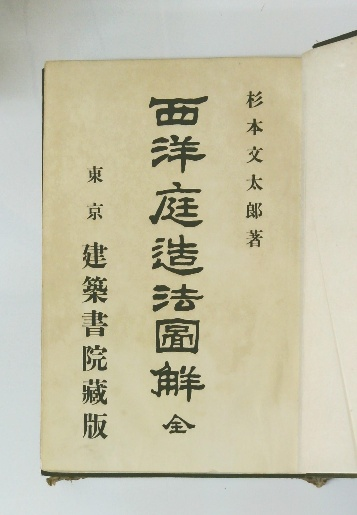 杉本文太郎著
西洋庭造法圖解 全
東京 建築書院藏版